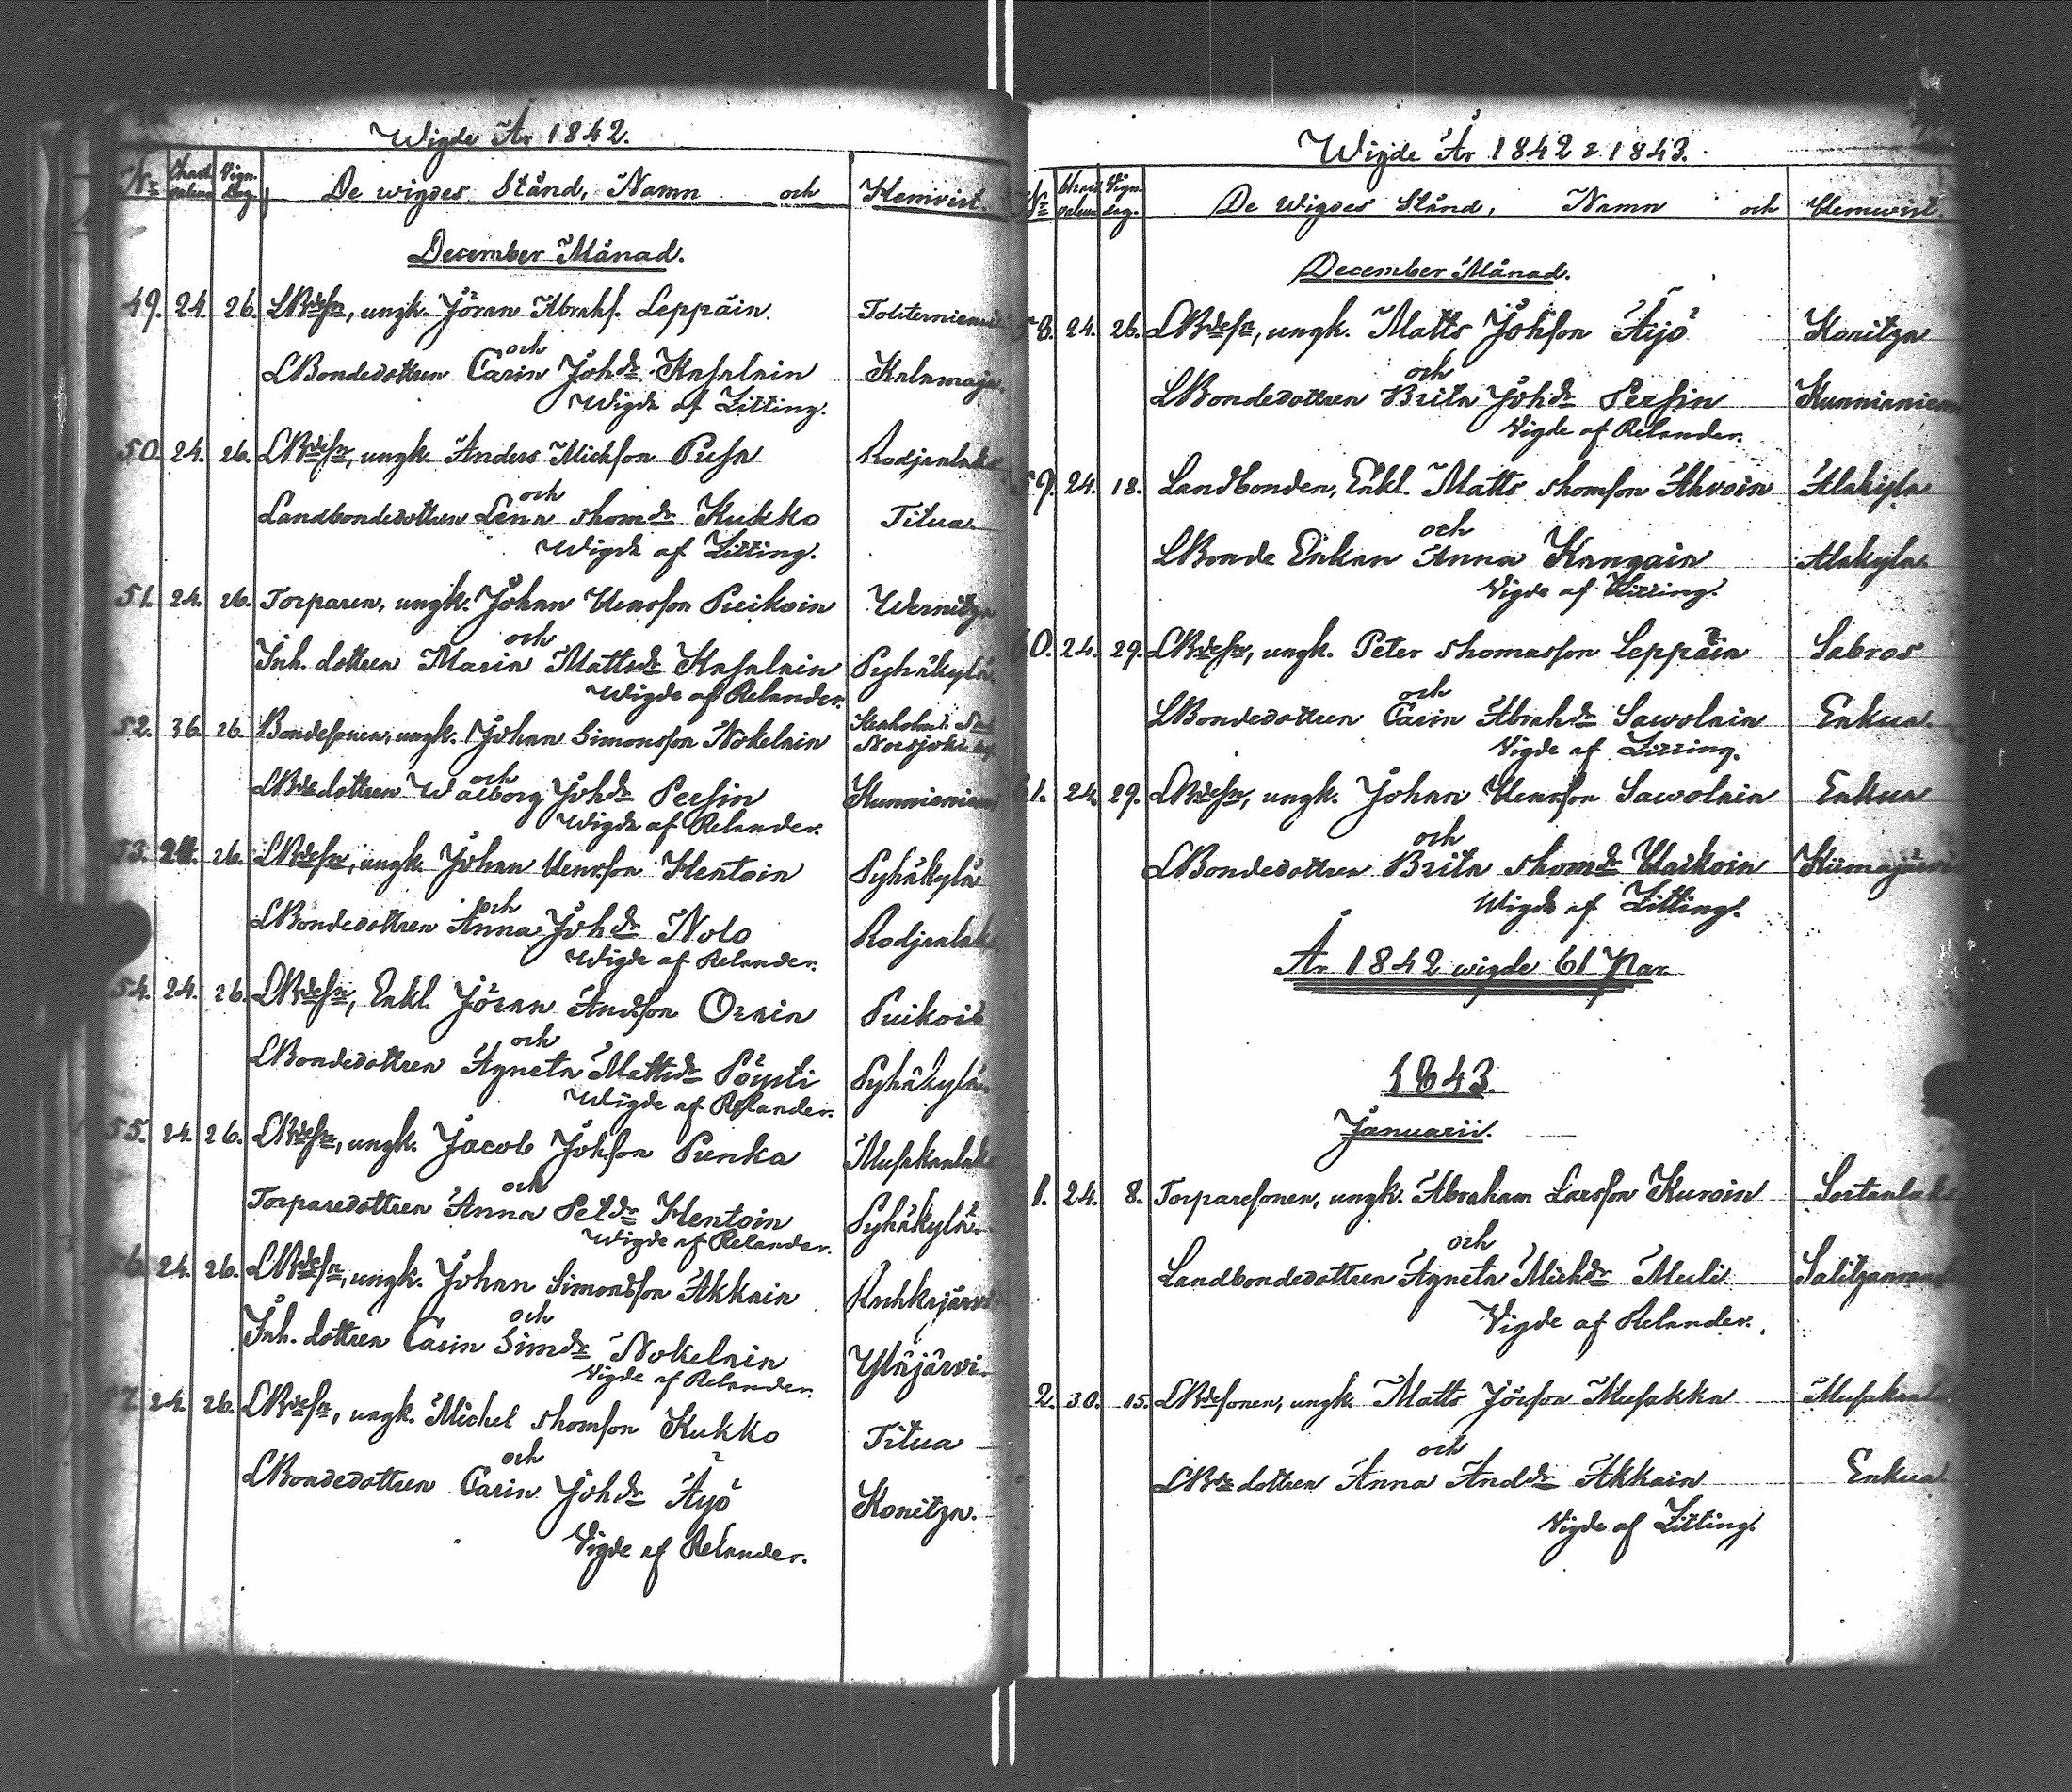 Wigde År 1842.
N:o Charta pal: Vign. dag. De wigdes Stånd, Namn och Hemvist.
December Månad.
49. 24. 26. LBdeSn, ungk. Jöran Abrahs. Leppäin. Toliterniemi
och
LBondedottren Carin Johdr Kasalain Kalamaja
Wigde af Zitting.
50. 24. 26. LBdeSn, ungk. Anders Micksson Pusa Rodjanlaks
och
Landbondedottren Lena Thomdr Kukko Titua
Wigde af Zitting.
51. 24. 26. Torparen, ungk. Johan Henrsson Puikoin Wernitza
och
Inh. dottren Maria Mattsdr Kasalain Pyhäkylä
Wigde af Relander.
52. 36. 26. Bondesonen, ungk. Johan Simonsson Nokelain Norsjoki
och
LBdedottren Walborg Johdr Persin Kunnianiemi
Wigde af Relander.
53. 24. 26. LBdeSn, ungk. Johan Henrsson Hentoin Pyhäkylä
och
LBondedottren Anna Johdr Nolo Rodjanlaks
Wigde af Relander.
54. 24. 26. LBdeSn, Enkl. Jöran Andsson Orain Puikois
och
LBondedottren Agneta Mattsdr Pöysti Pyhäkylä
Wigde af Relander.
55. 24. 26. LBdeSn, ungk. Jacob Johsson Punka Musakanlaks
och
Torparedottren Anna Petdr Hentoin Pyhäkylä
Wigde af Relander.
56. 24. 26. LBdeSn, ungk. Johan Simonsson Akkain Rahkajärvi
och
Inh. dottren Carin Simdr Nokelain Yläjärvi
Vigde af Relander.
57. 24. 26. LBdeSn, ungk. Michel Thomsson Kukko Titua
och
LBondedottren Carin Johdr Äijö Konitza.
Vigde af Relander.
Wigde År 1842 & 1843.
N:o Charta pal: Vign. dag. De Wigdes Stånd, Namn och Hemwist
December Månad.
58. 24. 26. LBdeSn, ungk. Matts Johsson Äijö Konitza
och
LBondedottren Brita Johdr Persin Kunnianiemi
Vigde af Relander.
59. 24. 18. Landbonden, Enkl. Matts Thomsson Ahvoin Alakyla
och
LBonde Enkan Anna Kangain Alakyla
Vigde af Zitting.
60. 24. 29. LBdeSn, ungk. Peter Thomasson Leppäin Sabros
och
LBondedottren Carin Abrahdr Sawolain Enkua
Vigde af Zitting.
61. 24. 29. LBdeSn, ungk. Johan Henrsson Sawolain Enkua
och
LBondedottren Brita Thomdr Haikoin Kiimajärvi
Wigde af Zitting.
År 1842 wigde 61 Par.
1843.
Januarii.
1. 24. 8. Torparesonen, ungk. Abraham Larsson Kuroin Sortanlaks
och
Landbondedottren Agneta Michdr Muli
Vigde af Relander.
2. 30. 15. LBdesonen, ungk. Matts Jörsson Musakka Musakanl
och
LBde dottren Anna Anddr Akkain Enkua
Vigde af Zitting.